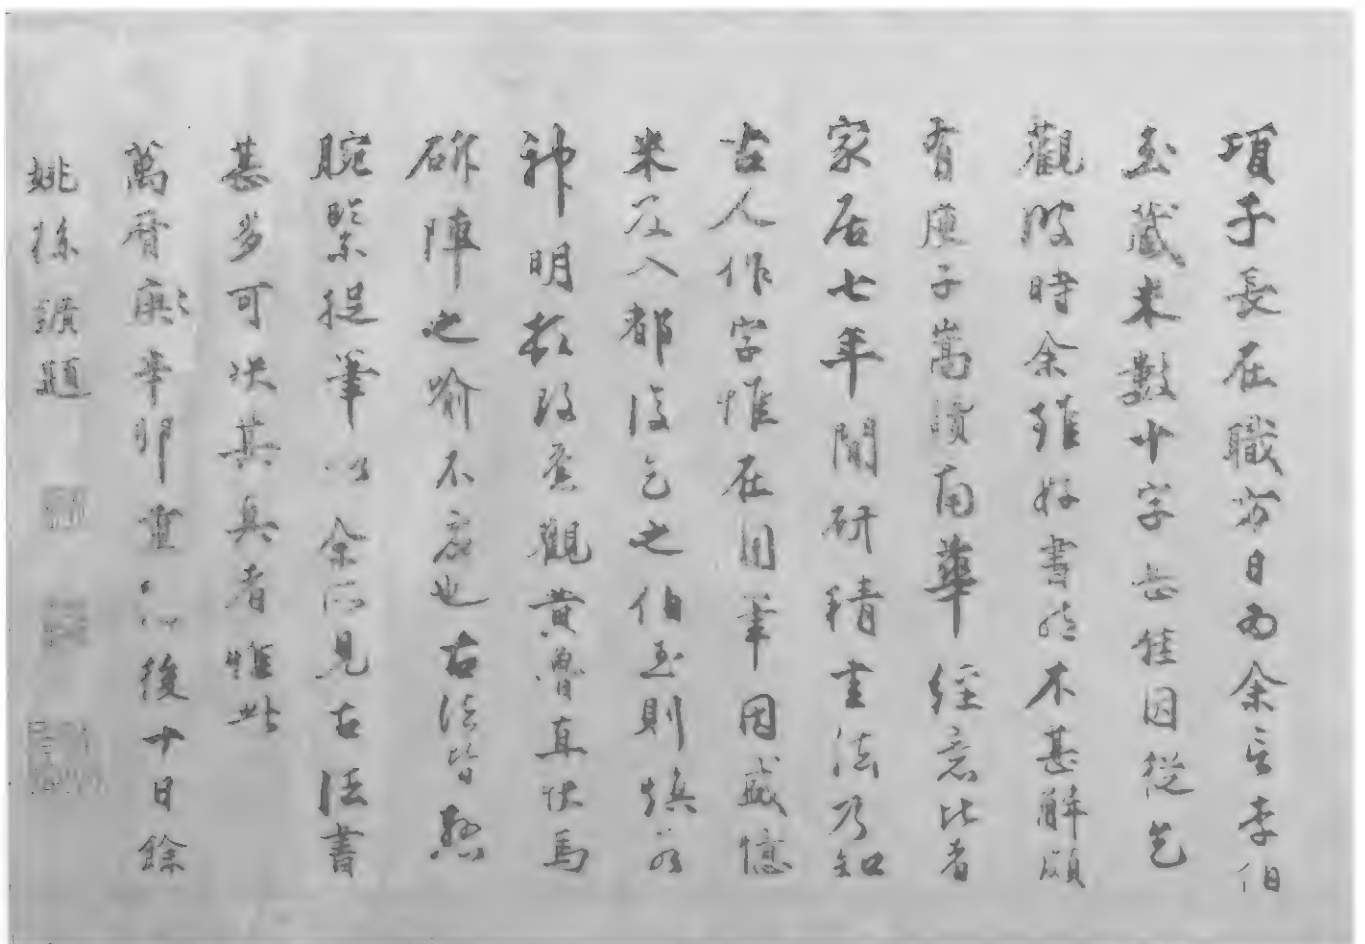 項子長在職方日為余言李伯
玉藏米數十字甚佳因從乞
觀彼時余雖好書然不甚解頗
有庾子嵩讀南華經意比者
家居七年間研精書法乃知
古人作字惟在用筆因盛憶
米及入都復乞之伯玉則煥若
神明頓改舊觀黃魯直快馬
斫陣之喻不虛也古法皆懸
腕緊捉筆以余所見古法書
甚多可決其真者惟此
萬曆庚辛卯重九後十日餘
姚孫鑛題